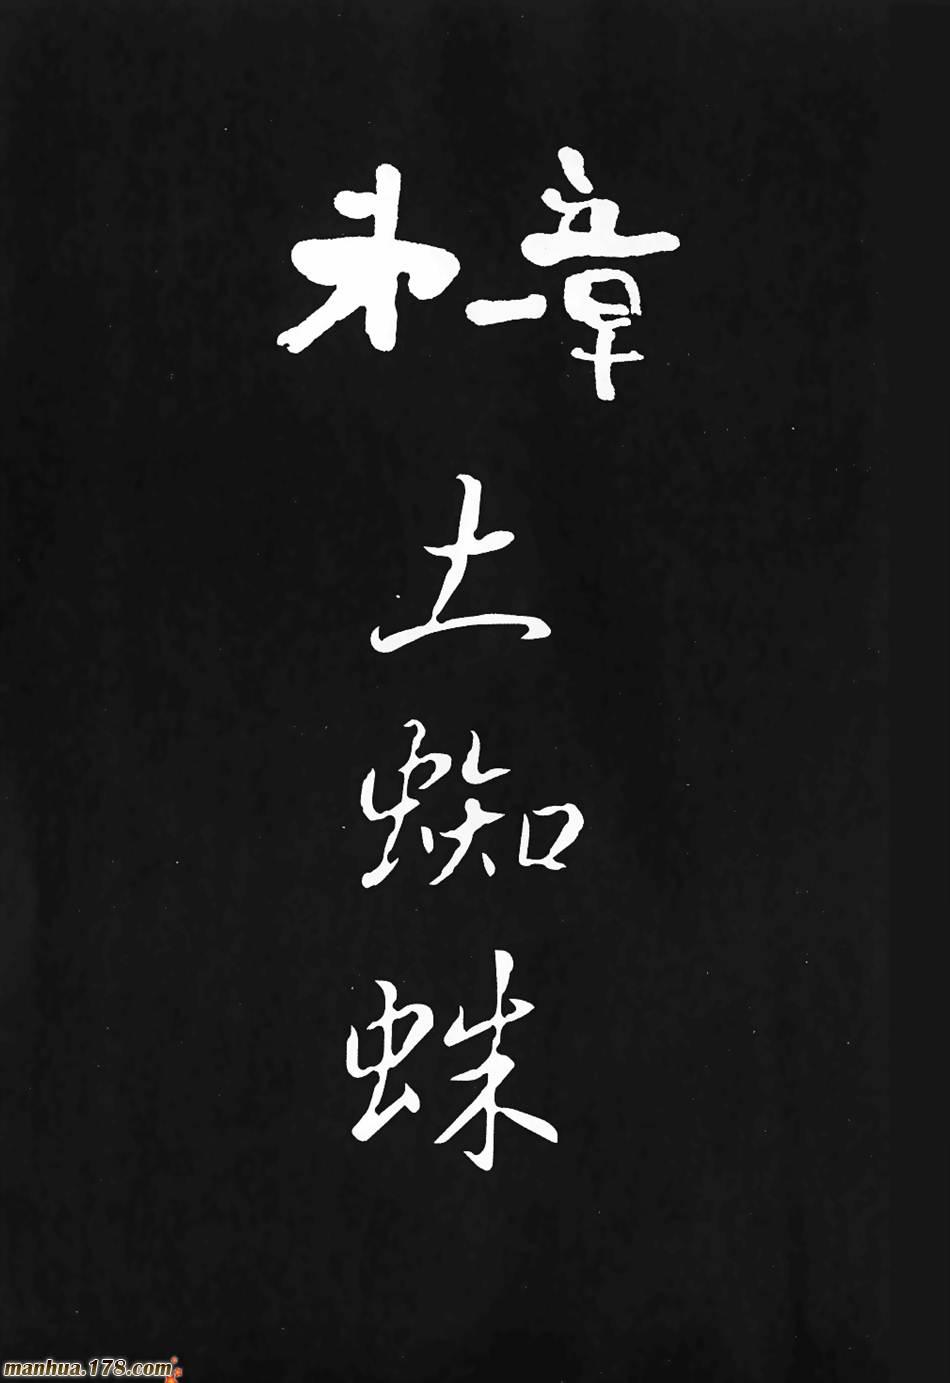 第一章
土
蜘
蛛
manhua.178.com